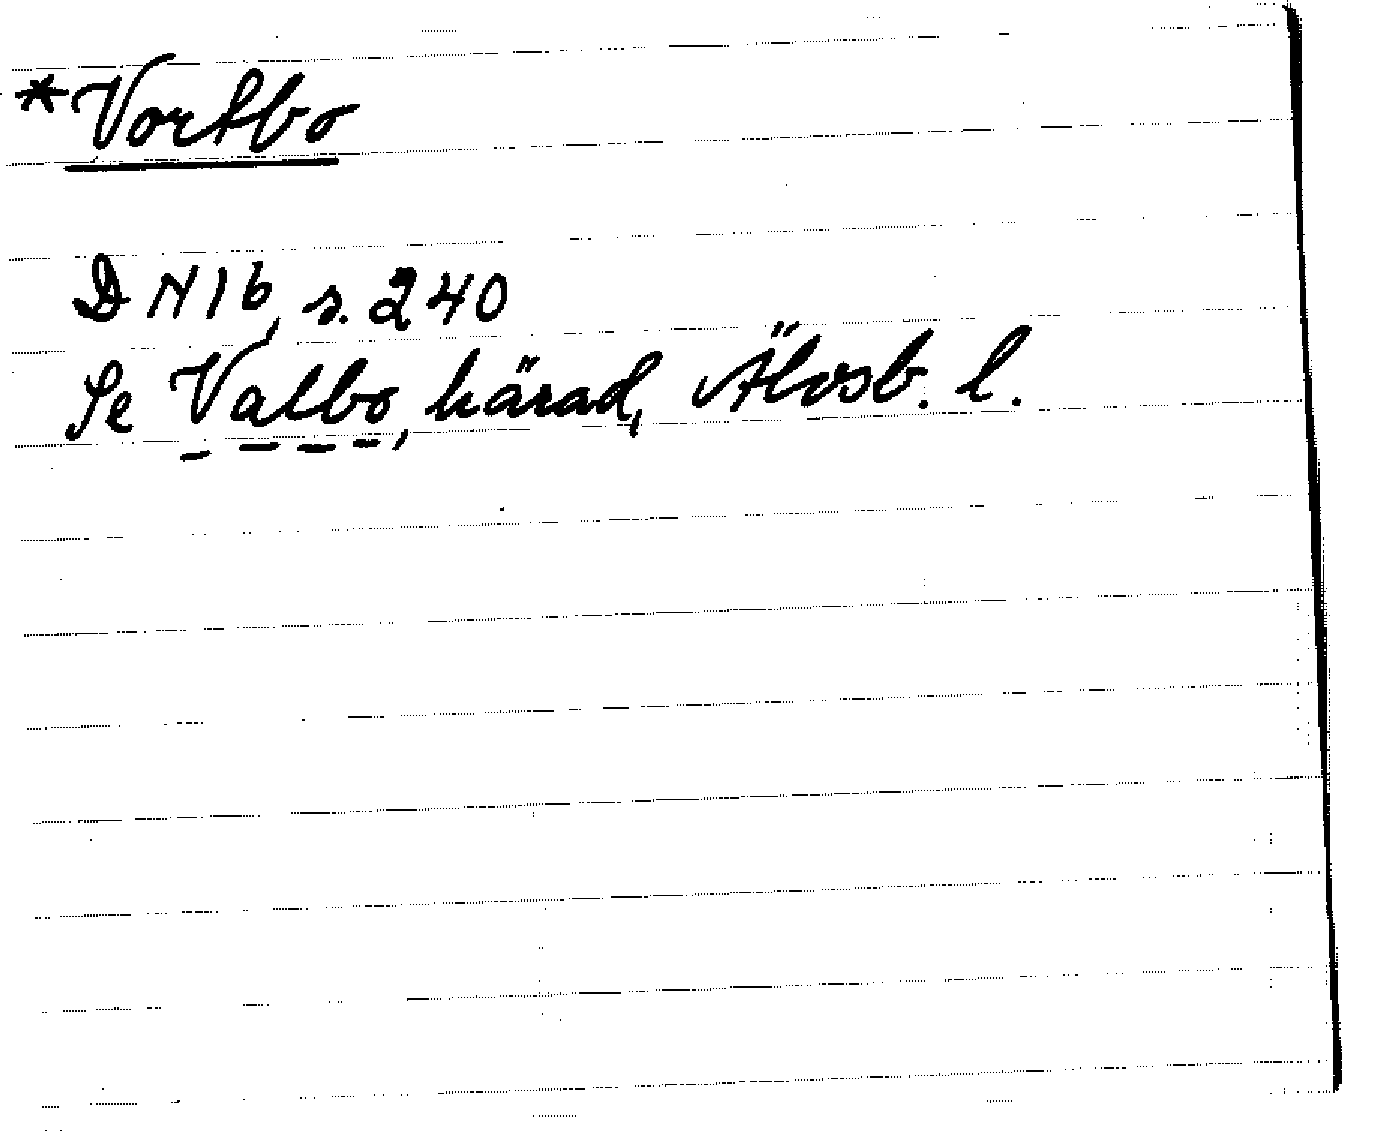 *Vortbo
DN 16, s. 240
Se Valbo, härad, Älvsb. l.